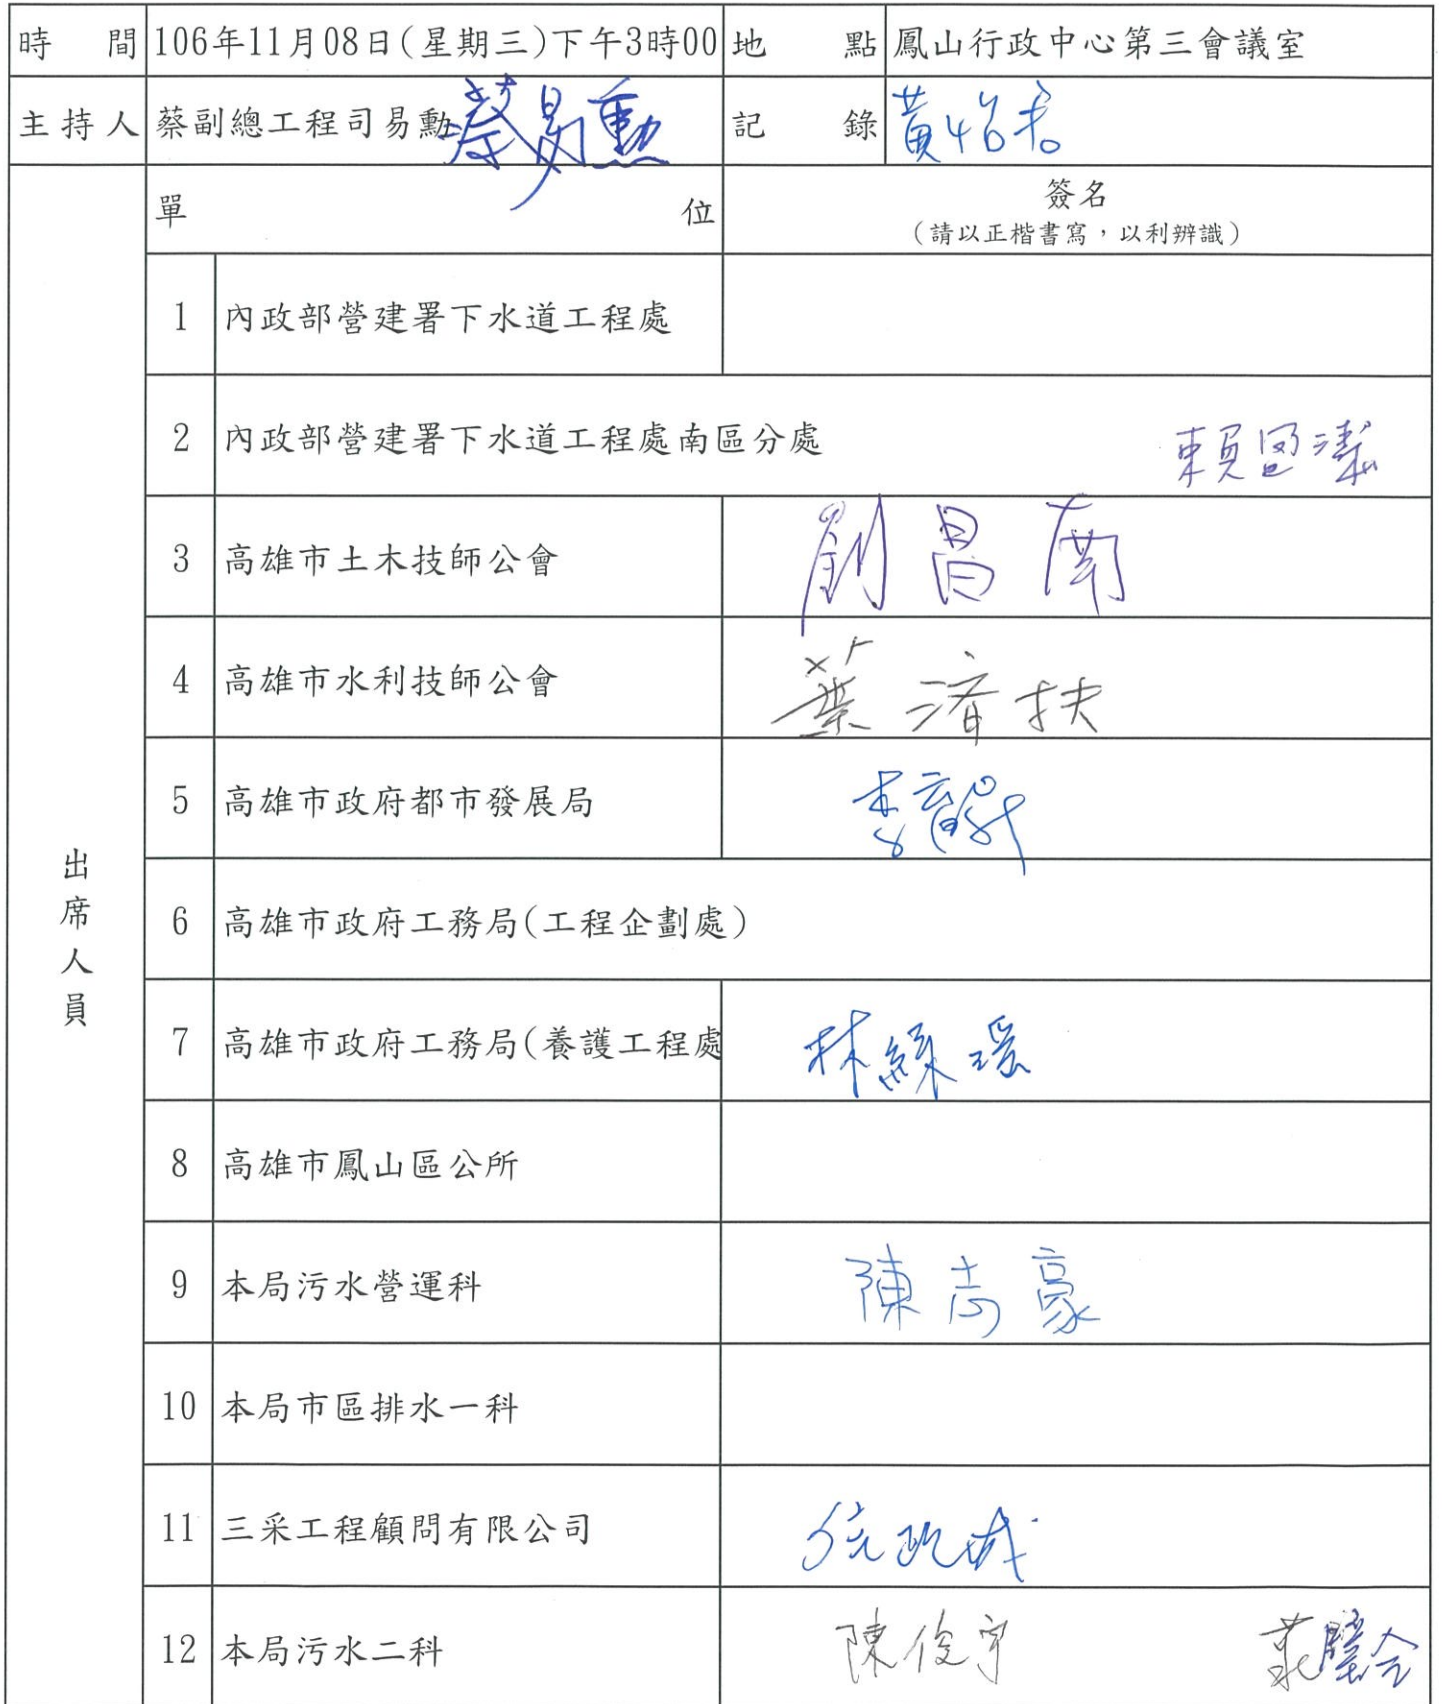 時 間 106年11月08日(星期三)下午3時00 地 點 鳳山行政中心第三會議室
主持人 蔡副總工程司易勳 蔡易勳 記 錄 黃怡君
單 位 簽名
(請以正楷書寫，以利辨識)
出席人員
1 內政部營建署下水道工程處
2 內政部營建署下水道工程處南區分處 賴
3 高雄市土木技師公會 劉昌南
4 高雄市水利技師公會 葉 扶
5 高雄市政府都市發展局 李
6 高雄市政府工務局(工程企劃處)
7 高雄市政府工務局(養護工程處 林 瑤
8 高雄市鳳山區公所
9 本局污水營運科 陳志豪
10 本局市區排水一科
11 三采工程顧問有限公司
12 本局污水二科 陳俊宇